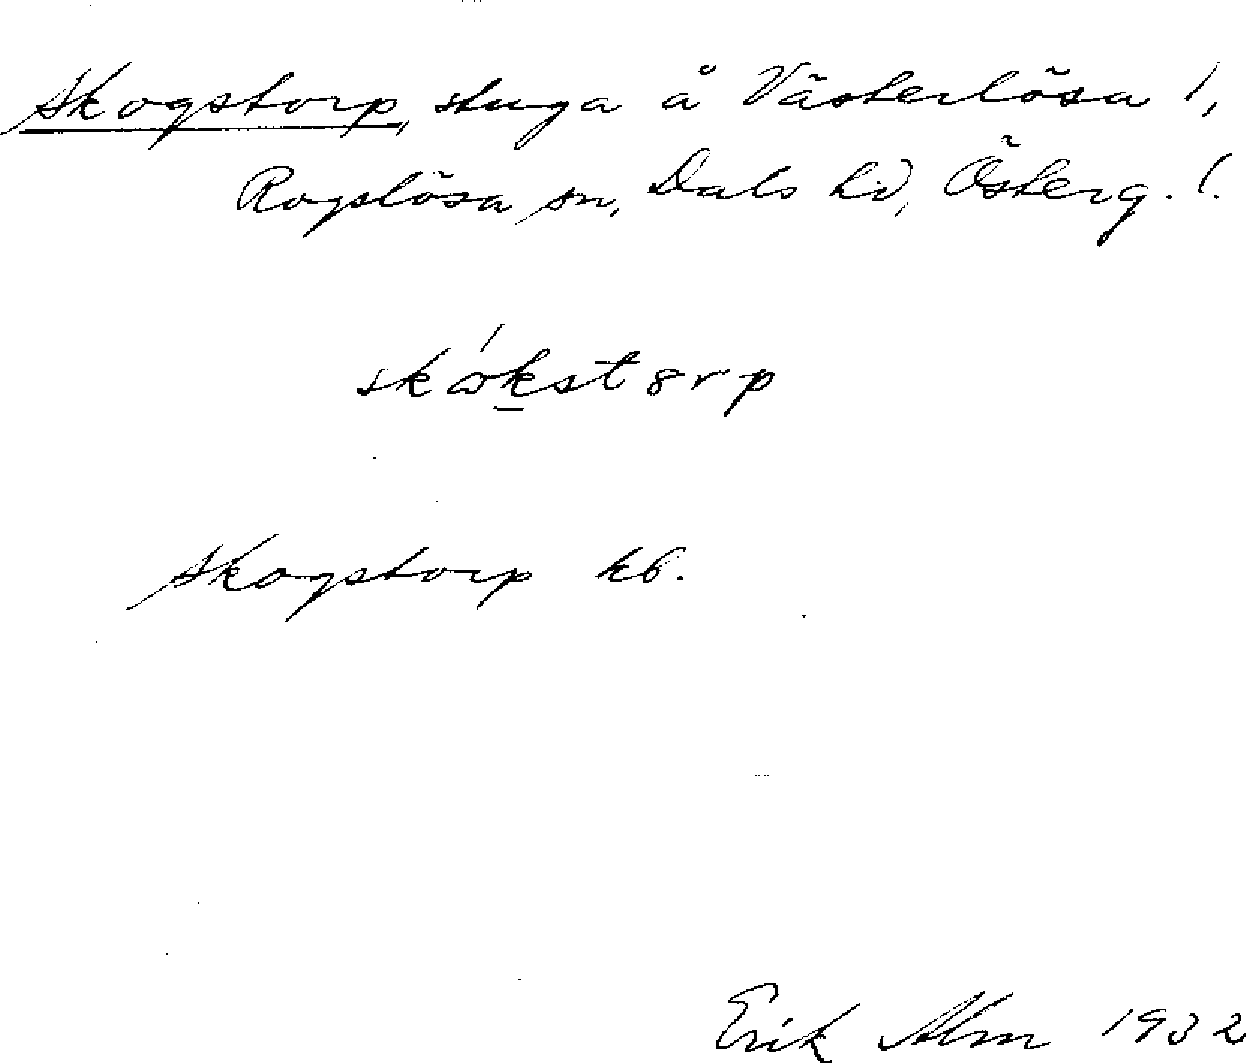 Skogstorp, stuga å Västerlösa 1,
Rogslösa sn, Dals hd, Österg. l.
skώkstȣrp
Skogstorp kb.
Erik Alm 1932